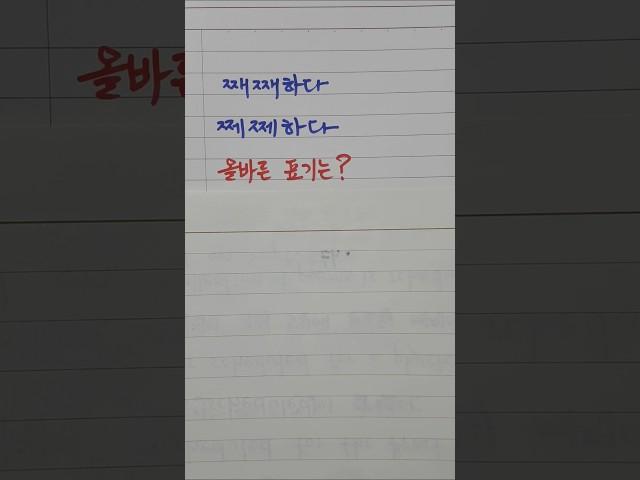 째째하다
쩨쩨하다
올바른 표기는?